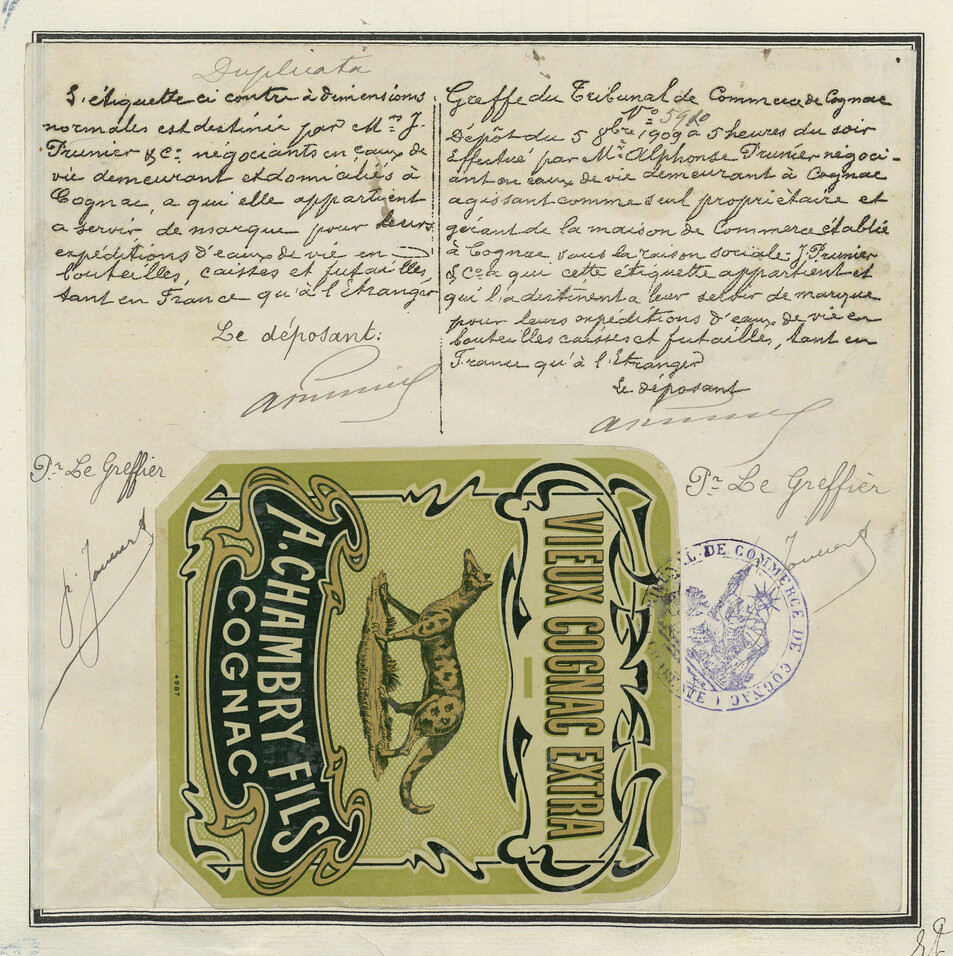 Duplicata
L'étiquette ci contre à dimensions
normales est destinée par Mrs J.
Prunier & Co négociants en eaux de
vie demeurant et domiciliés à
Cognac, a qui elle appartient
a servir de marque pour leurs
expéditions d'eaux de vie en
bouteilles, caisses et futailles,
tant en France qu'à l'Etranger
Le déposant:
Pr Le Greffier
Greffe du Tribunal de Commerce de Cognac
No 5910
Dépôt du 5 8bre 1909 à 5 heures du soir
Effectué par Mr Alphonse Prunier négoci-
ant en eaux de vie demeurant à Cognac
agissant comme seul propriétaire et
gérant de la maison de Commerce établie
à Cognac sous la raison sociale: J. Prunier
& Co a qui cette étiquette appartient et
qui l'a destinent a leur servir de marque
pour leurs expéditions d'eaux de vie en
bouteilles caisses et futailles, tant en
France qu'à l'Etranger
Le déposant
Pr Le Greffier
VIEUX COGNAC EXTRA
A. CHAMBRY FILS
COGNAC
4987
TRIBUNAL DE COMMERCE DE COGNAC